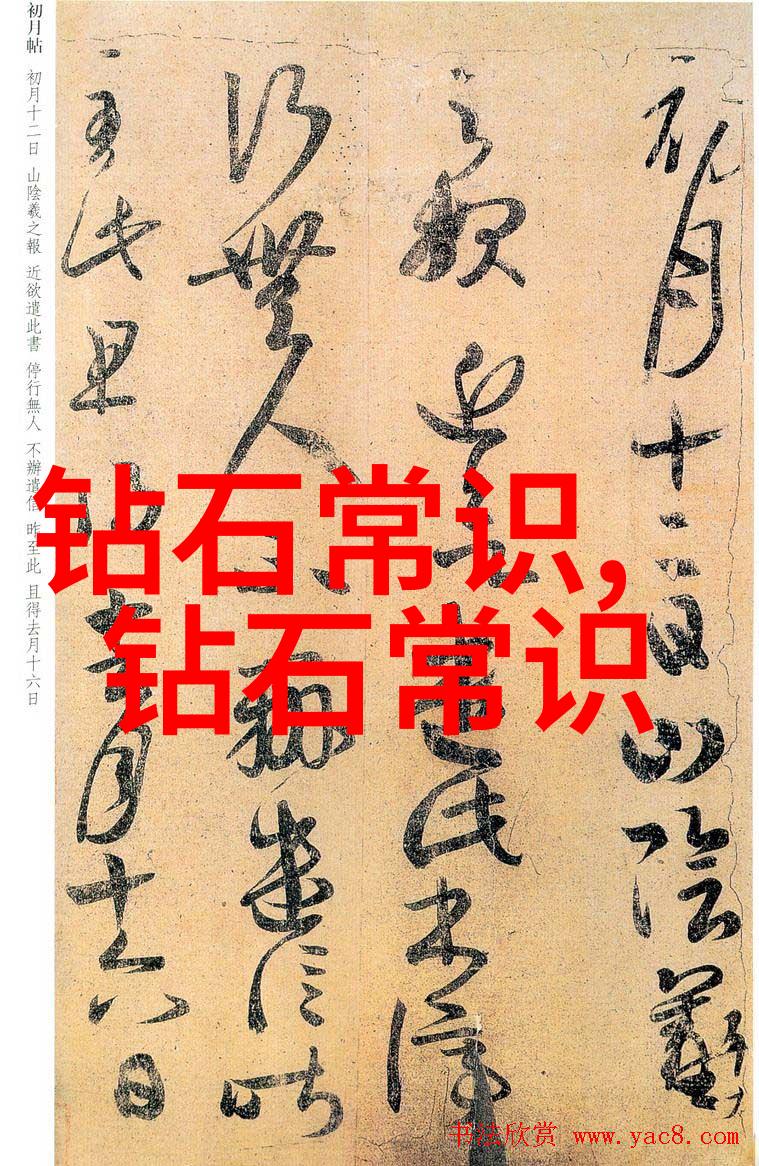 初月十二日山陰羲
之報近欲遣此書停
行無人不辦遣信昨
至此且得去月十六日
初月帖 初月十二日 山陰羲之報 近欲遣此書 停行無人 不辦遣信 昨至此 且得去月十六日
钻石常识,
钻石常识
书法欣赏 www.yac8.com